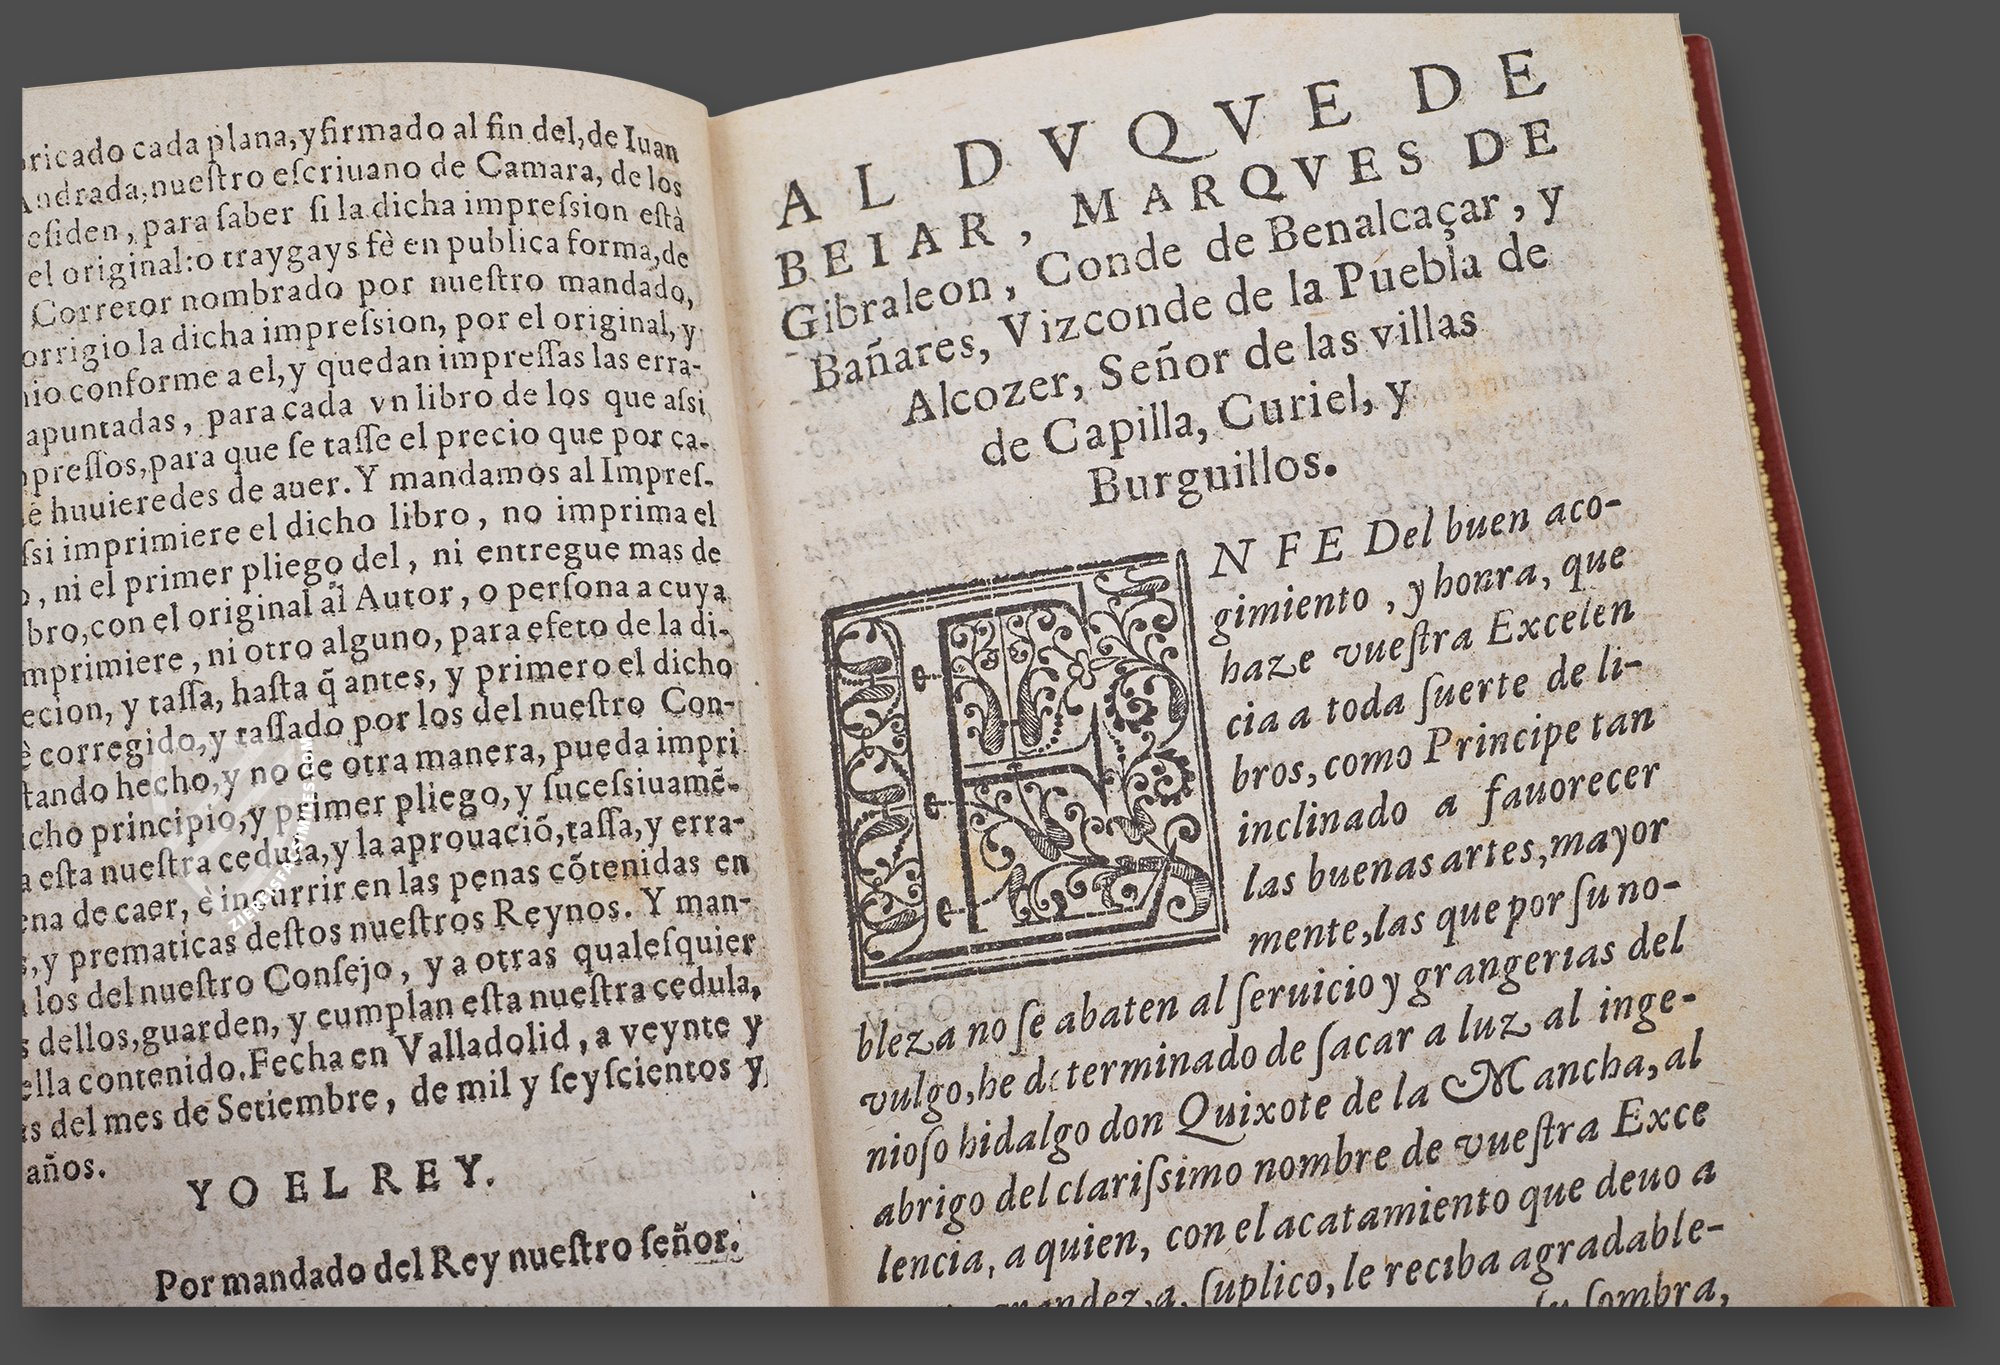 ricado cada plana, y firmado al fin del, de Iuan
Andrada, nueſtro eſcriuano de Camara, de los
eſiden, para ſaber ſi la dicha impreſsion eſtà
el original: o traygays fè en publica forma, de
Corretor nombrado por nueſtro mandado,
orrigio la dicha impreſsion, por el original, y
io conforme a el, y quedan impreſſas las erra-
apuntadas, para cada vn libro de los que aſsi
preſſos, para que ſe taſſe el precio que por ca-
e huuieredes de auer. Y mandamos al Impreſ-
ſsi imprimiere el dicho libro, no imprima el
o, ni el primer pliego del, ni entregue mas de
bro, con el original al Autor, o perſona a cuya
mprimiere, ni otro alguno, para efeto de la di-
ecion, y taſſa, haſta q̃ antes, y primero el dicho
è corregido, y taſſado por los del nueſtro Con-
tando hecho, y no de otra manera, pueda impri
icho principio, y primer pliego, y ſuceſsiuamẽ-
a eſta nueſtra cedula, y la aprouaciõ, taſſa, y erra-
ena de caer, è incurrir en las penas cõtenidas en
s, y prematicas deſtos nueſtros Reynos. Y man-
a los del nueſtro Conſejo, y a otras qualeſquier
s dellos, guarden, y cumplan eſta nueſtra cedula,
ella contenido. Fecha en Valladolid, a veynte y
as del mes de Setiembre, de mil y ſeyſcientos y
años.
YO EL REY.
Por mandado del Rey nueſtro ſeñor.
AL DVQVE DE
BEIAR, MARQVES DE
Gibraleon, Conde de Benalcaçar, y
Bañares, Vizconde de la Puebla de
Alcozer, Señor de las villas
de Capilla, Curiel, y
Burguillos.
EN FE Del buen aco-
gimiento, y honra, que
haze vueſtra Excelen
cia a toda ſuerte de li-
bros, como Principe tan
inclinado a fauorecer
las buenas artes, mayor
mente, las que por ſu no-
bleza no ſe abaten al ſeruicio y grangerias del
vulgo, he determinado de ſacar a luz al inge-
nioſo hidalgo don Quixote de la Mancha, al
abrigo del clariſsimo nombre de vueſtra Exce
lencia, a quien, con el acatamiento que deuo a
grandeza, ſuplico, le reciba agradable-
ſu ſombra,
ZIEREISFACSIMILES.COM